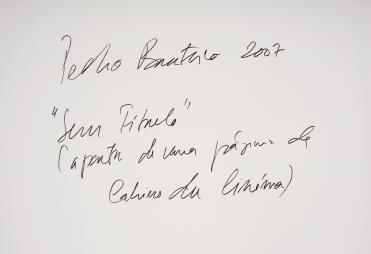 Pedro Barateiro 2007
"Sem Título"
(a partir de uma página de
Cahiers du Cinéma)